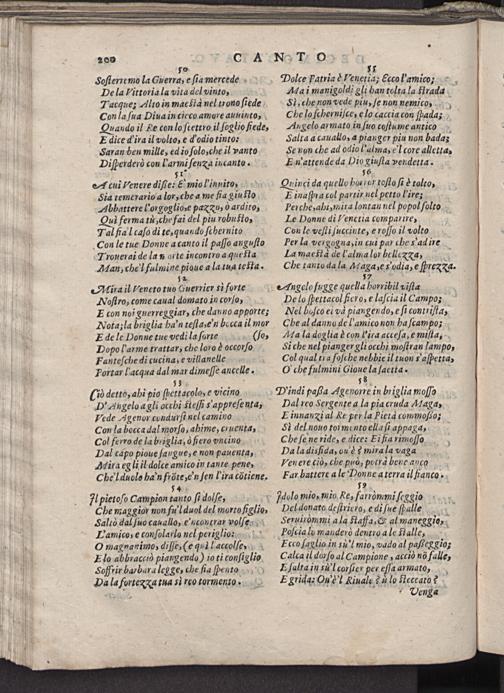 200 CANTO
50
Sosterremo la Guerra, e sia mercede
De la Vittoria la vita del vinto,
Tacque; Alto in maestà nel trono siede
Con la sua Diua in circo amore auuinto,
Quando il Re con lo scettro il soglio fiede,
E dice d'ira il volto, e d'odio tinto:
Saran ben mille, ed io solo, che il vanto
Disperderò con l'armi senza incanto.
51
A cui Venere disse: E' mio l'inuito,
Sia temerario a lor, che a me sia giusto
Abbattere l'orgoglio, e pazzo, ò ardito,
Quì ferma tù, che fai del piu robusto,
Tal sia l caso di te, quando schernito
Con le tue Donne a canto il passo angusto
Trouerai de la morte incontro a questa
Man, che'l fulmine pioue a la tua testa.
52
Mira il Veneto tuo Guerrier si forte
Nostro, come caual domato in corso,
E con noi guerreggiar, che danno apporte;
Nota; la briglia ha'n testa, e'n bocca il mor
E de le Donne tue vedi la sorte (so,
Dopo l'arme trattar, che loro è occorso
Fantesche di cucina, e villanelle
Portar l'acqua dal mar dimesse ancelle.
53
Ciò detto, ahi pio spettacolo, e vicino
D'Angelo a gli occhi stessi s'appresenta,
Vede Agenor condursi nel camino
Con la bocca dal morso, ahime, cruenta,
Col ferro de la briglia, ò fiero vncino
Dal capo pioue sangue, e non pauenta,
Mira egli il dolce amico in tante pene,
Che'l duolo ha'n frōte, e'n sen l'ira cōtiene.
54
Il pietoso Campion tanto si dolse,
Che maggior non fu'l duol del morto figlio,
Saltò dal suo cauallo, e'ncontrar volse
L'amico, e consolarlo nel periglio:
O magnanimo, disse, (e quì l'accolse,
E lo abbracciò piangendo) io ti consiglio
Soffrir barbara legge, che sia spento
Da la fortezza tua sì reo tormento.
55
Dolce Patria è Venetia; Ecco l'amico;
Ma i manigoldi gli han tolta la strada
Sì, che non vede piu, se non nemico,
Che lo schernisce, e lo caccia con spada;
Angelo armato in suo costume antico
Salta a cauallo, a pianger piu non bada;
Se non che ad odio l'alma, e'l core alletta,
E n'attende da Dio giusta vendetta.
56
Quinci da quello horror tosto si è tolto,
E inaspra col partir nel petto l'ire;
Perche, ahi, mira lontan nel popol folto
Le Donne di Venetia comparire,
Con le vesti succinte, e rosso il volto
Per la vergogna, in cui par che s'adire
La maestà de l'alma lor bellezza,
Che tanto da la Maga, e s'odia, e sprezza.
57
Angelo fugge quella horribil vista
De lo spettacol fiero, e lascia il Campo;
Nel bosco ei và piangendo, e si contrista,
Che al danno de l'amico non ha scampo;
Ma la doglia è con l'ira accesa, e mista,
Si che nel pianger gli occhi mostran lampo,
Col qual tra fosche nebbie il tuon s'aspetta,
O' che fulmini Gioue la saetta.
58
D'indi passa Agenorre in briglia mosso
Dal reo Sergente a la pia cruda Maga,
E innanzi al Re per la Pietà commosso;
Sì del nouo tormento ella si appaga,
Che se ne ride, e dice: Ei sia rimosso
Da la disfida, ou'è? mira la vaga
Venere ciò, che può, potrà bene anco
Far battere a le Donne a terra il fianco.
59
Idolo mio, mio Re, farrommi seggio
Del donato destriero, e di sue spalle
Seruirommi a la staffa, & al maneggio,
Poscia lo manderò dentro a le stalle,
Ecco saglio in sù'l mio, vado al passeggio;
Calca il dorso al Campione, acciò nō falle,
E salta in sù'l corsier per essa armato,
E grida: Ou'è'l Riuale? ù lo steccato?
Venga